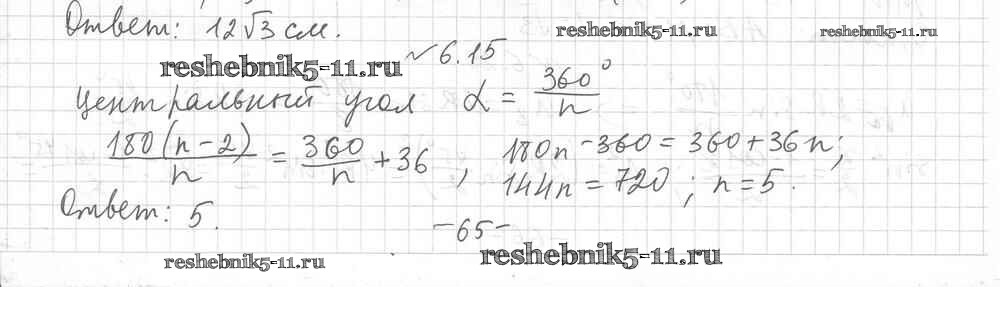 Ответ: 12√3 см.
reshebnik5-11.ru reshebnik5-11.ru
№ 6.15
reshebnik5-11.ru
Центральный угол α = 360°/n
180(n-2)/n = 360/n + 36, 180n - 360 = 360 + 36n;
144n = 720; n = 5.
Ответ: 5.
-65-
reshebnik5-11.ru
reshebnik5-11.ru